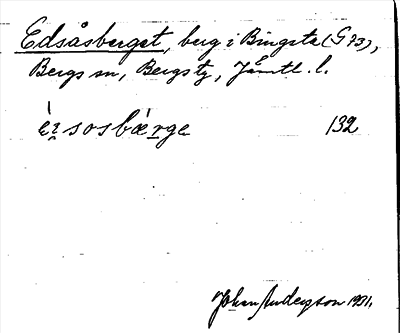 Edsåsberget, berg i Bingsta (G 73),
Bergs sn, Bergs tg, Jämtl. l.
èɪsosbǽrge 132
Johan Anderson 1931.